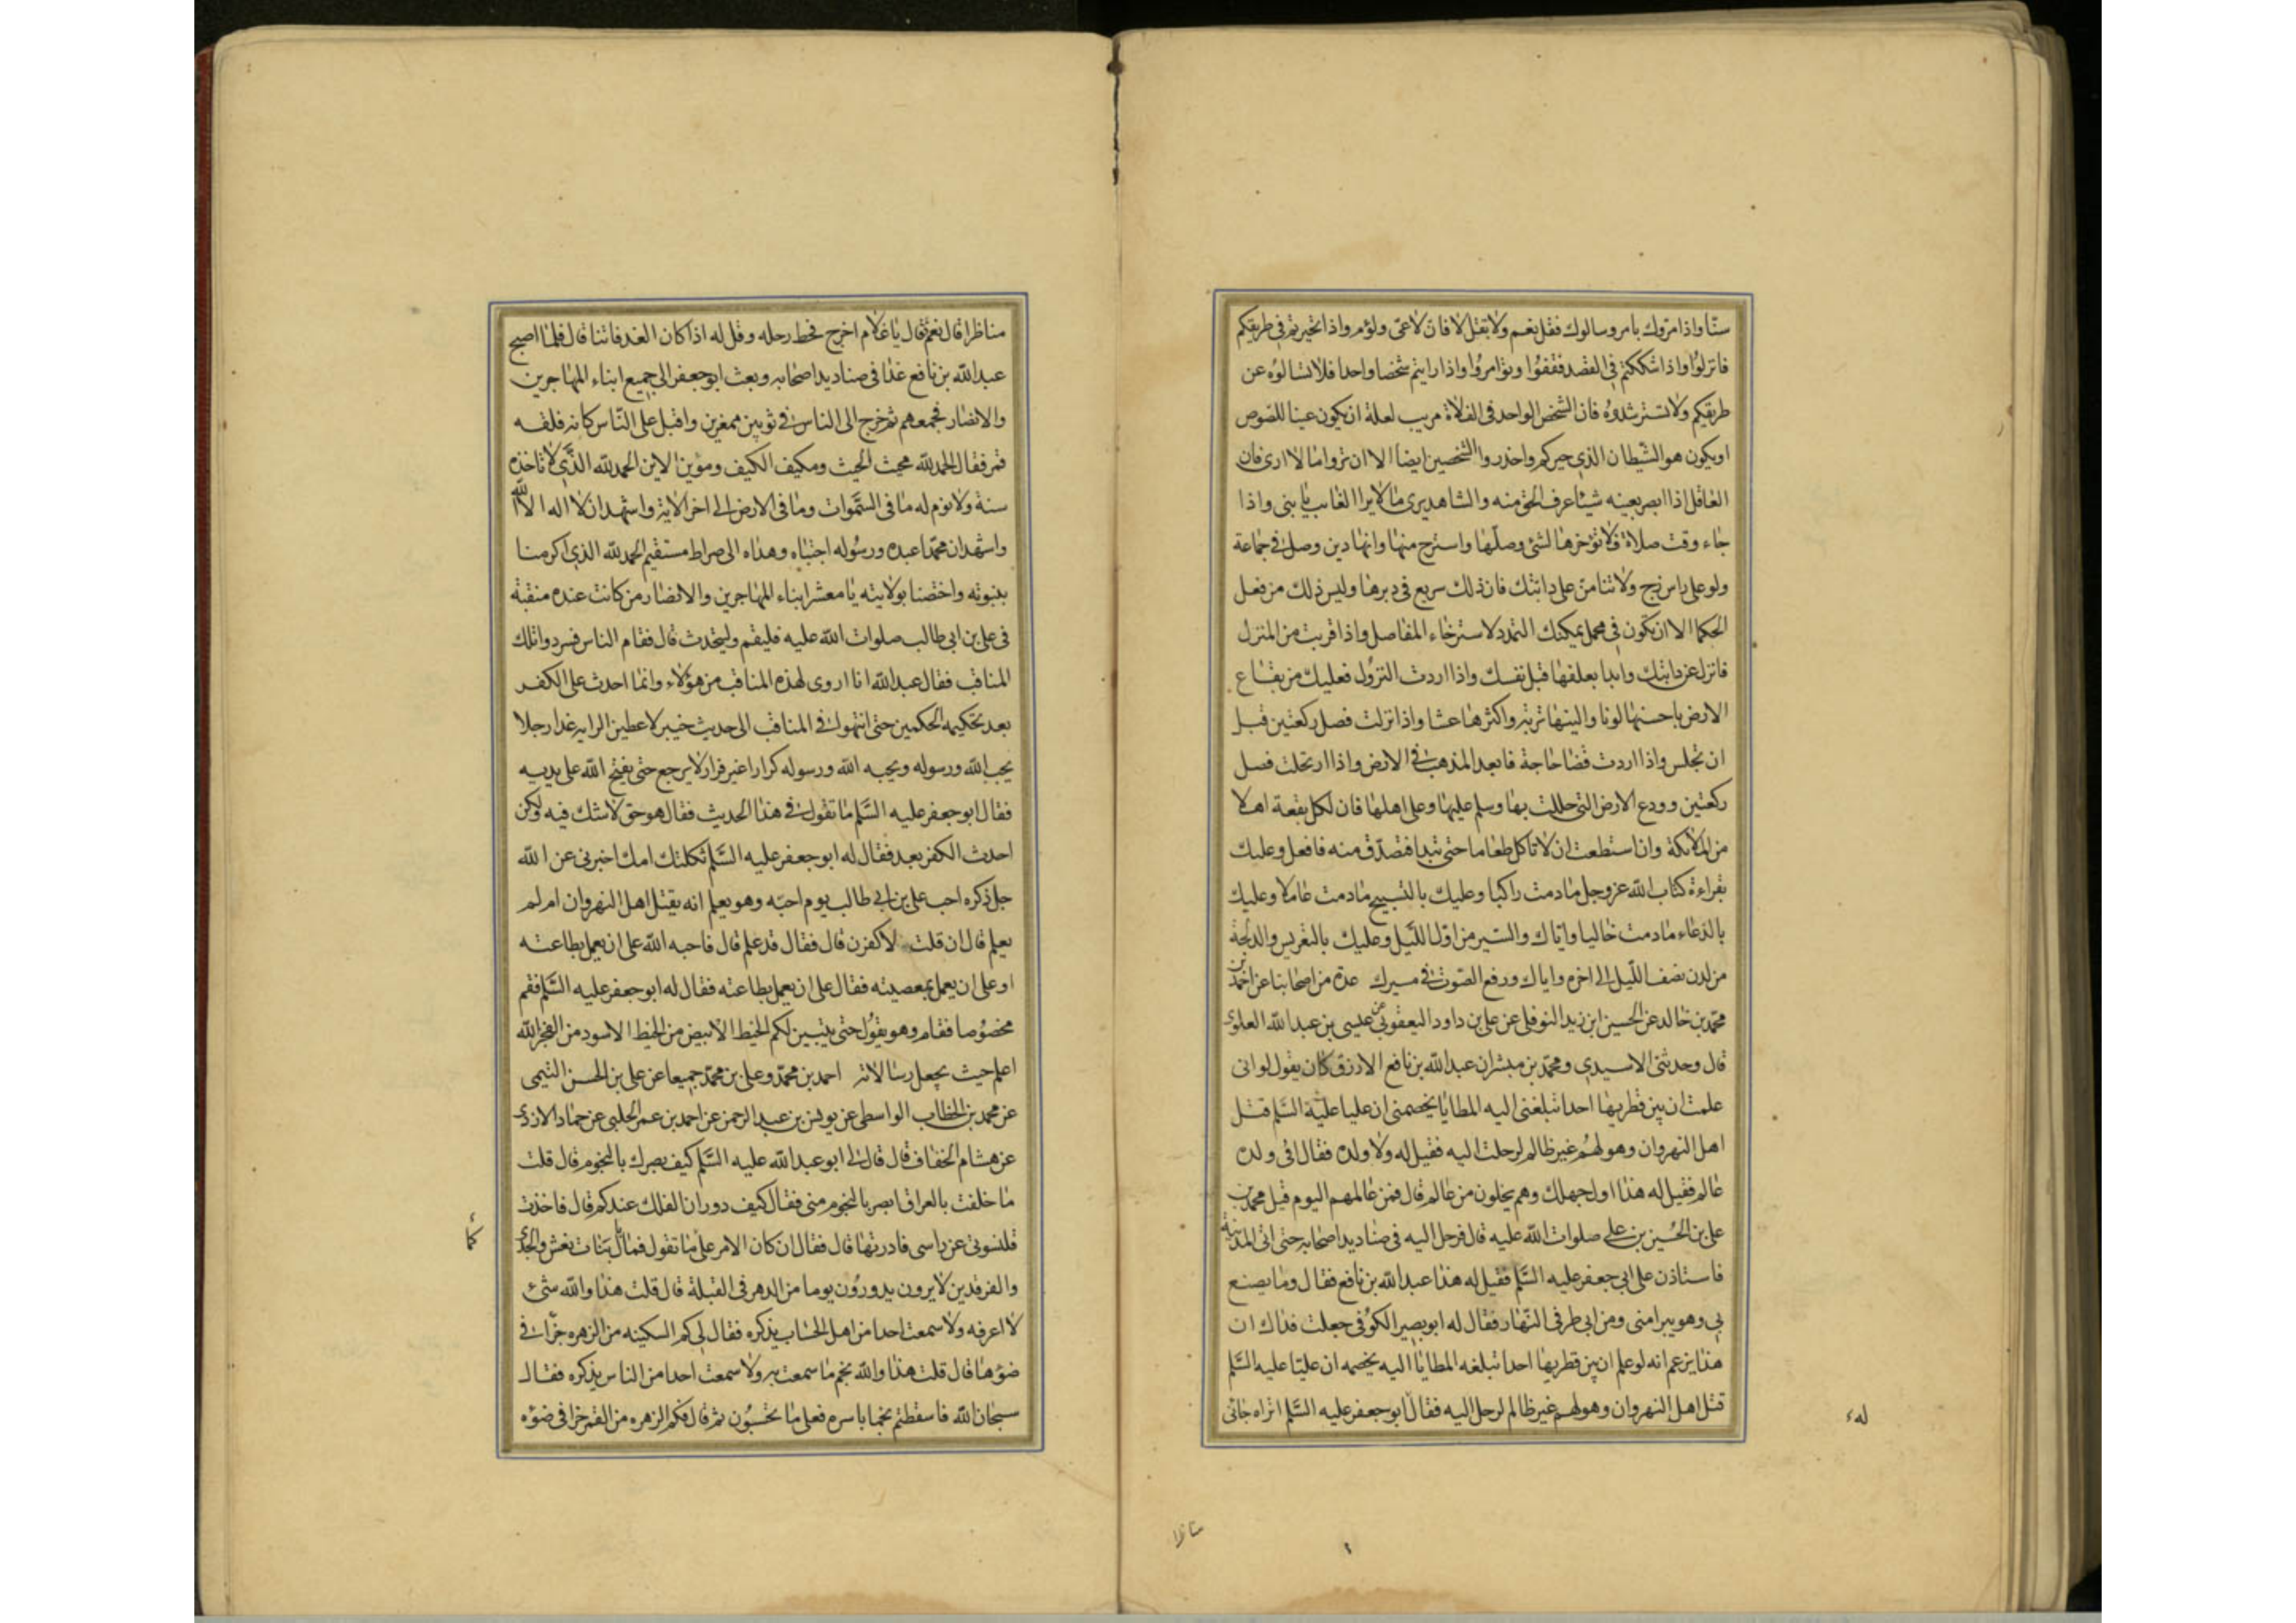 سنّا واذا امرّوك بامر وسالوك فقل نعم ولا تقل لا فان لا عىّ ولؤم واذا تحيرتم فى طريقكم
فانزلوا واذا شككتم فى القصد فقفوا وتوامروا واذا رايتم شخصا واحدا فلا تسالوه عن
طريقكم ولا تسترشدوه فان الشخص الواحد فى الفلاة مريب لعلة ان يكون عينا للصوص
او يكون هو الشيطان الذى حيركم واحذروا الشخصين ايضا الا ان تروا ما لا ارى فان
العاقل اذا ابصر بعينه شيئا عرف الحق منه والشاهد يرى ما لا يرا الغايب يا بنى واذا
جاء وقت صلاة فلا تؤخرها لشئ وصلّها واسترح منها فانها دين وصل فى جماعة
ولو على راس زج ولا تنامن على دابتك فان ذلك سريع فى دبرها وليس ذلك من فعل
الحكما الا ان تكون فى محمل يمكنك التمدد لاسترخاء المفاصل واذا قربت من المنزل
فانزل عن دابتك وابدا بعلفها قبل نفسك واذا اردت النزول فعليك من بقاع
الارض باحسنها لونا والينها تربه واكثرها عشا واذا نزلت فصل ركعتين قبل
ان تجلس واذا اردت قضا حاجة فابعد المذهب فى الارض واذا ارتحلت فصل
ركعتين وودع الارض التى حللت بها وسلم عليها وعلى اهلها فان لكل بقعة اهلا
من الملائكة وان استطعت ان لا تاكل طعاما حتى تبدا فتصدّق منه فافعل وعليك
بقراءة كتاب الله عز وجل ما دمت راكبا وعليك بالتسبيح ما دمت عاملا وعليك
بالدعاء ما دمت خاليا واياك والسير من اول الليل وعليك بالتعريس والدلجة
من لدن نصف الليل الى اخره واياك ورفع الصوت فى مسيرك عدة من اصحابنا عن احمد بن
محمد بن خالد عن الحسين ابن زيد النوفلى عن على بن داود اليعقوبى عن عيسى بن عبد الله العلوى
قال وحدثنى الاسيدى ومحمد بن مبشر ان عبد الله بن نافع الازرق كان يقول لو انى
علمت ان بين قطريها احدا تبلغنى اليه المطايا يخصمنى ان عليا عليه السلم قتل
اهل النهروان وهو لهم غير ظالم لرحلت اليه فقيل له ولا ولده فقال افى ولده
عالم فقيل له هذا اول جهلك وهم يخلون من عالم قال فمن عالمهم اليوم قيل محمد بن
على بن الحسين بن على صلوات الله عليه قال فرحل اليه فى صناديد اصحابه حتى اتى المدينة
فاستاذن على ابى جعفر عليه السلم فقيل له هذا عبد الله بن نافع فقال وما يصنع
بى وهو يبرا منى ومن ابى طرفى النهار فقال له ابو بصير الكوفى جعلت فداك ان
هذا يزعم انه لو علم ان بين قطريها احدا تبلغه المطايا اليه يخصمه ان عليا عليه السلم
قتل اهل النهروان وهو لهم غير ظالم لرحل اليه فقال ابو جعفر عليه السلم اتراه جائى
له
مناظرا
مناظرا قال نعم قال يا غلام اخرج فحط رحله وقل له اذا كان الغد فاتنا قال فلما اصبح
عبد الله بن نافع غدا فى صناديد اصحابه وبعث ابو جعفر الى جميع ابناء المهاجرين
والانصار فجمعهم ثم خرج الى الناس فى ثوبين ممغرين واقبل على الناس كانه فلقه
قمر فقال الحمد لله محيث الحيث ومكيف الكيف ومؤين الاين الحمد لله الذى لا تاخذه
سنة ولا نوم له ما فى السموات وما فى الارض الى اخر الاية واشهد ان لا اله الا الله
واشهد ان محمدا عبده ورسوله اجتباه وهداه الى صراط مستقيم الحمد لله الذى اكرمنا
بنبوته واختصنا بولايته يا معشر ابناء المهاجرين والانصار من كانت عنده منقبة
فى على بن ابى طالب صلوات الله عليه فليقم وليتحدث قال فقام الناس فسردوا تلك
المناقب فقال عبد الله انا اروى لهذه المناقب من هؤلاء وانما احدث على الكفر
بعد تحكيمه الحكمين حتى انتهوا فى المناقب الى حديث خيبر لاعطين الرايه غدا رجلا
يحب الله ورسوله ويحبه الله ورسوله كرارا غير فرار لا يرجع حتى يفتح الله على يديه
فقال ابو جعفر عليه السلم ما تقول فى هذا الحديث فقال هو حق لا شك فيه ولكن
احدث الكفر بعد فقال له ابو جعفر عليه السلم ثكلتك امك اخبرنى عن الله
جل ذكره احب على بن ابى طالب يوم احبه وهو يعلم انه يقتل اهل النهروان ام لم
يعلم قال ان قلت لا كفرت قال فقال قد علم قال فاحبه الله على ان يعمل بطاعته
او على ان يعمل بمعصيته فقال على ان يعمل بطاعته فقال له ابو جعفر عليه السلم فقم
مخصوما فقام وهو يقول حتى يتبين لكم الخيط الابيض من الخيط الاسود من الفجر الله
اعلم حيث يجعل رسالاته احمد بن محمد وعلى بن محمد جميعا عن على بن الحسن التيمى
عن محمد بن الخطاب الواسطى عن يونس بن عبد الرحمن عن احمد بن عمر الحلبى عن حماد الازدى
عن هشام الخفاف قال قال لى ابو عبد الله عليه السلم كيف بصرك بالنجوم قال قلت
ما خلفت بالعراق ابصر بالنجوم منى فقال كيف دوران الفلك عندكم قال فاخذت
قلنسوتى عن راسى فادرتها قال فقال ان كان الامر على ما تقول فما بال بنات نعش والجدى
والفرقدين لا يرون يدورون يوما من الدهر فى القبلة قال قلت هذا والله شئ
لا اعرفه ولا سمعت احدا من اهل الحساب يذكره فقال لى كم السكينه من الزهره جزا فى
ضوءها قال قلت هذا والله نجم ما سمعت به ولا سمعت احدا من الناس يذكره فقال
سبحان الله فاسقطتم نجما باسره فعلى ما تحسبون ثم قال فكم الزهره من القمر جزا فى ضوءه